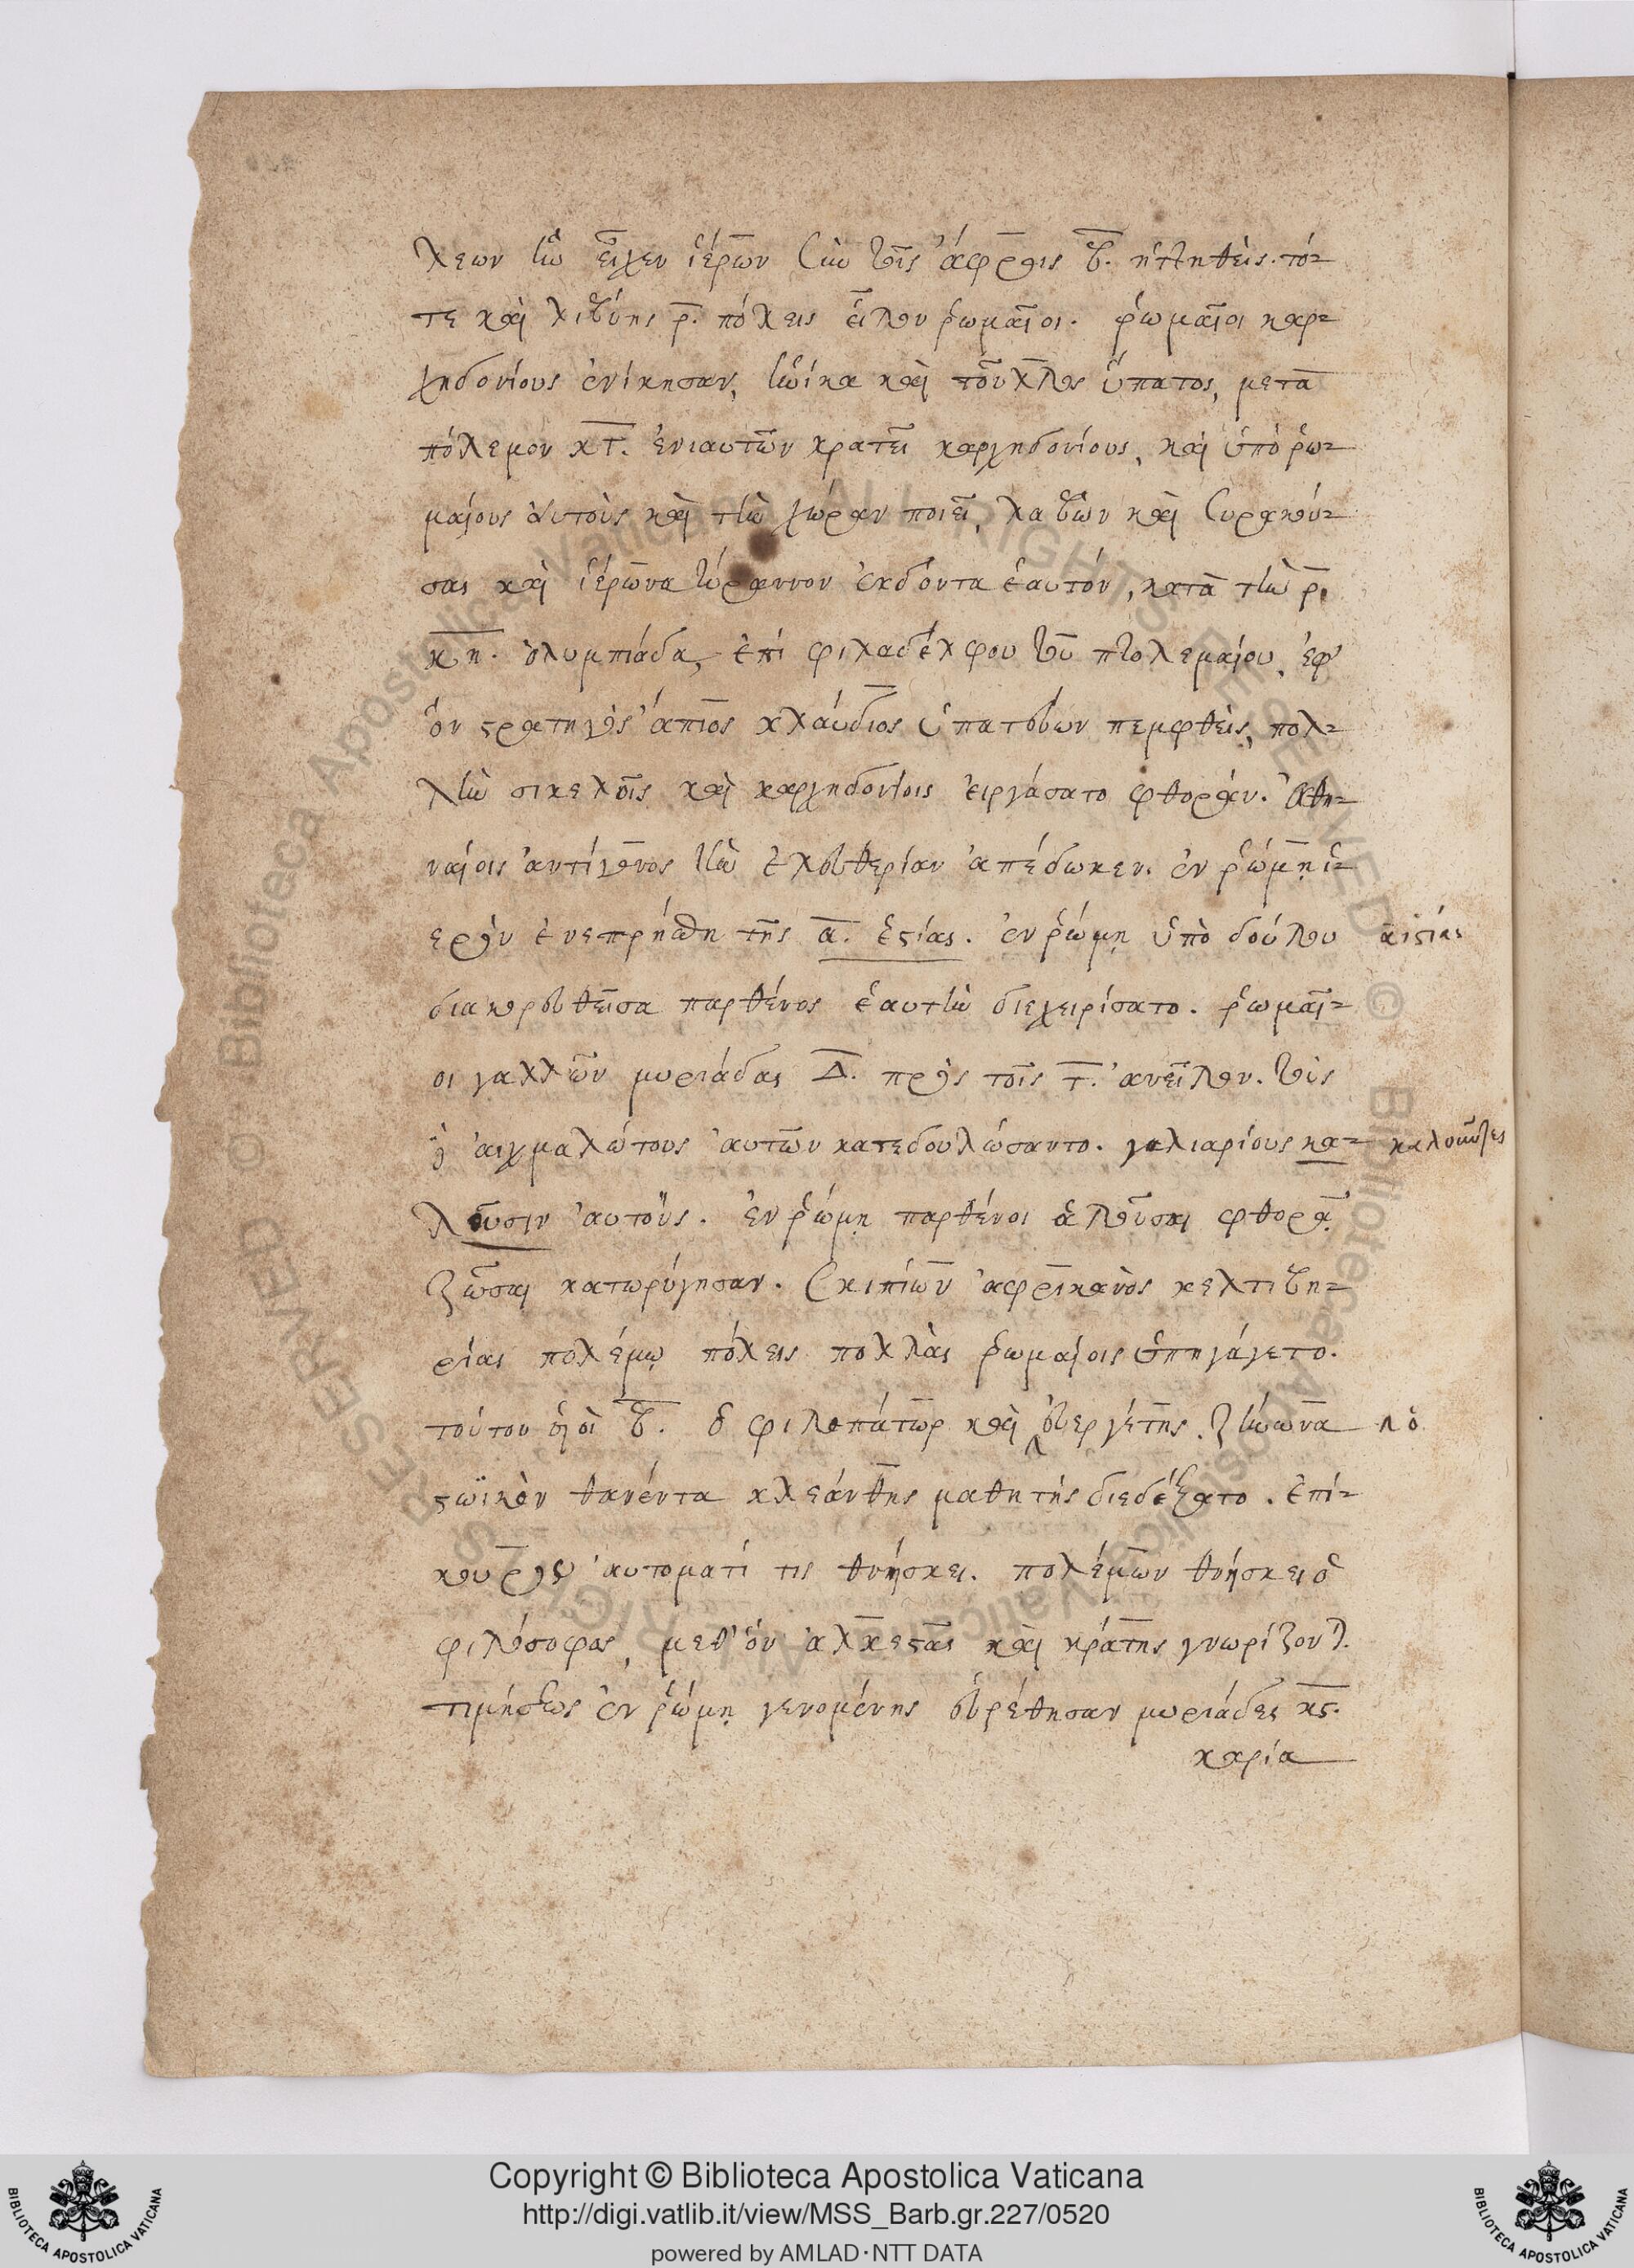 λεων ἣν εἶχεν ἱέρων σὺν τοῖς ἄφροις β. ἡττηθεὶς. τό-
τε καὶ λιβύης ρ. πόλεις εἷλον ῥωμαῖοι. ῥωμαῖοι καρ-
χηδονίους ἐνίκησαν, ἡνίκα καὶ ὕπατος, μετὰ
πόλεμον κτ. ἐνιαυτῶν κρατεῖ καρχηδονίους, καὶ ὑπὸ ῥω-
μαίους αὐτοὺς καὶ τὴν χώραν ποιεῖ, λαβὼν καὶ συρακού-
σας καὶ ἱέρωνα τύραννον ἐκδόντα ἑαυτόν, κατὰ τὴν ρ.
κη. ὀλυμπιάδα, ἐπὶ φιλαδέλφου τοῦ πτολεμαίου, ἐφ'
ὃν στρατηγὸς ἄπιος κλαύδιος ὑπατεύων πεμφθεὶς, πολ-
λὴν σικελοῖς καὶ καρχηδονίοις εἰργάσατο φθοράν. ἀθη-
ναίοις ἀντίγονος τὴν ἐλευθερίαν ἀπέδωκεν. ἐν ῥώμῃ ἱ-
ερὸν ἐνεπρήσθη τῆς α. ἑστίας. ἐν ῥώμῃ ὑπὸ δούλου αἰστίας
διακορευθεῖσα παρθένος ἑαυτὴν διεχειρίσατο. ῥωμαῖ-
οι γαλλῶν μυριάδας Δ. πρὸς τοῖς τ. ἀνεῖλον. τοὺς
δὲ αἰχμαλώτους αὐτῶν κατεδουλώσαντο. γαλιαρίους κα- καλοῦντες
λοῦσιν αὐτούς. ἐν ῥώμῃ παρθένοι ἁλοῦσαι φθορᾷ
ζῶσαι κατωρύγησαν. Σκιπίων ἀφρικανὸς κελτιβη-
ρίας πολέμῳ πόλεις πολλὰς ῥωμαίοις ὑπηγάγετο.
τούτου υἱοὶ β. ὁ φιλοπάτωρ καὶ εὐεργέτης. ζήνωνα ∧ ὁ
στωϊκὸν θανόντα κλεάνθης μαθητὴς διεδέξατο. ἐπί-
κουρος αὐτοματί τις θνήσκει. πολέμων θνήσκει ὁ
φιλόσοφος, μεθ' ὃν ἀλκεστᾶς καὶ κράτης γνωρίζονται.
τιμήσεως ἐν ῥώμῃ γενομένης εὑρέθησαν μυριάδες κϛ.
καρία
Copyright © Biblioteca Apostolica Vaticana
http://digi.vatlib.it/view/MSS_Barb.gr.227/0520
powered by AMLAD·NTT DATA